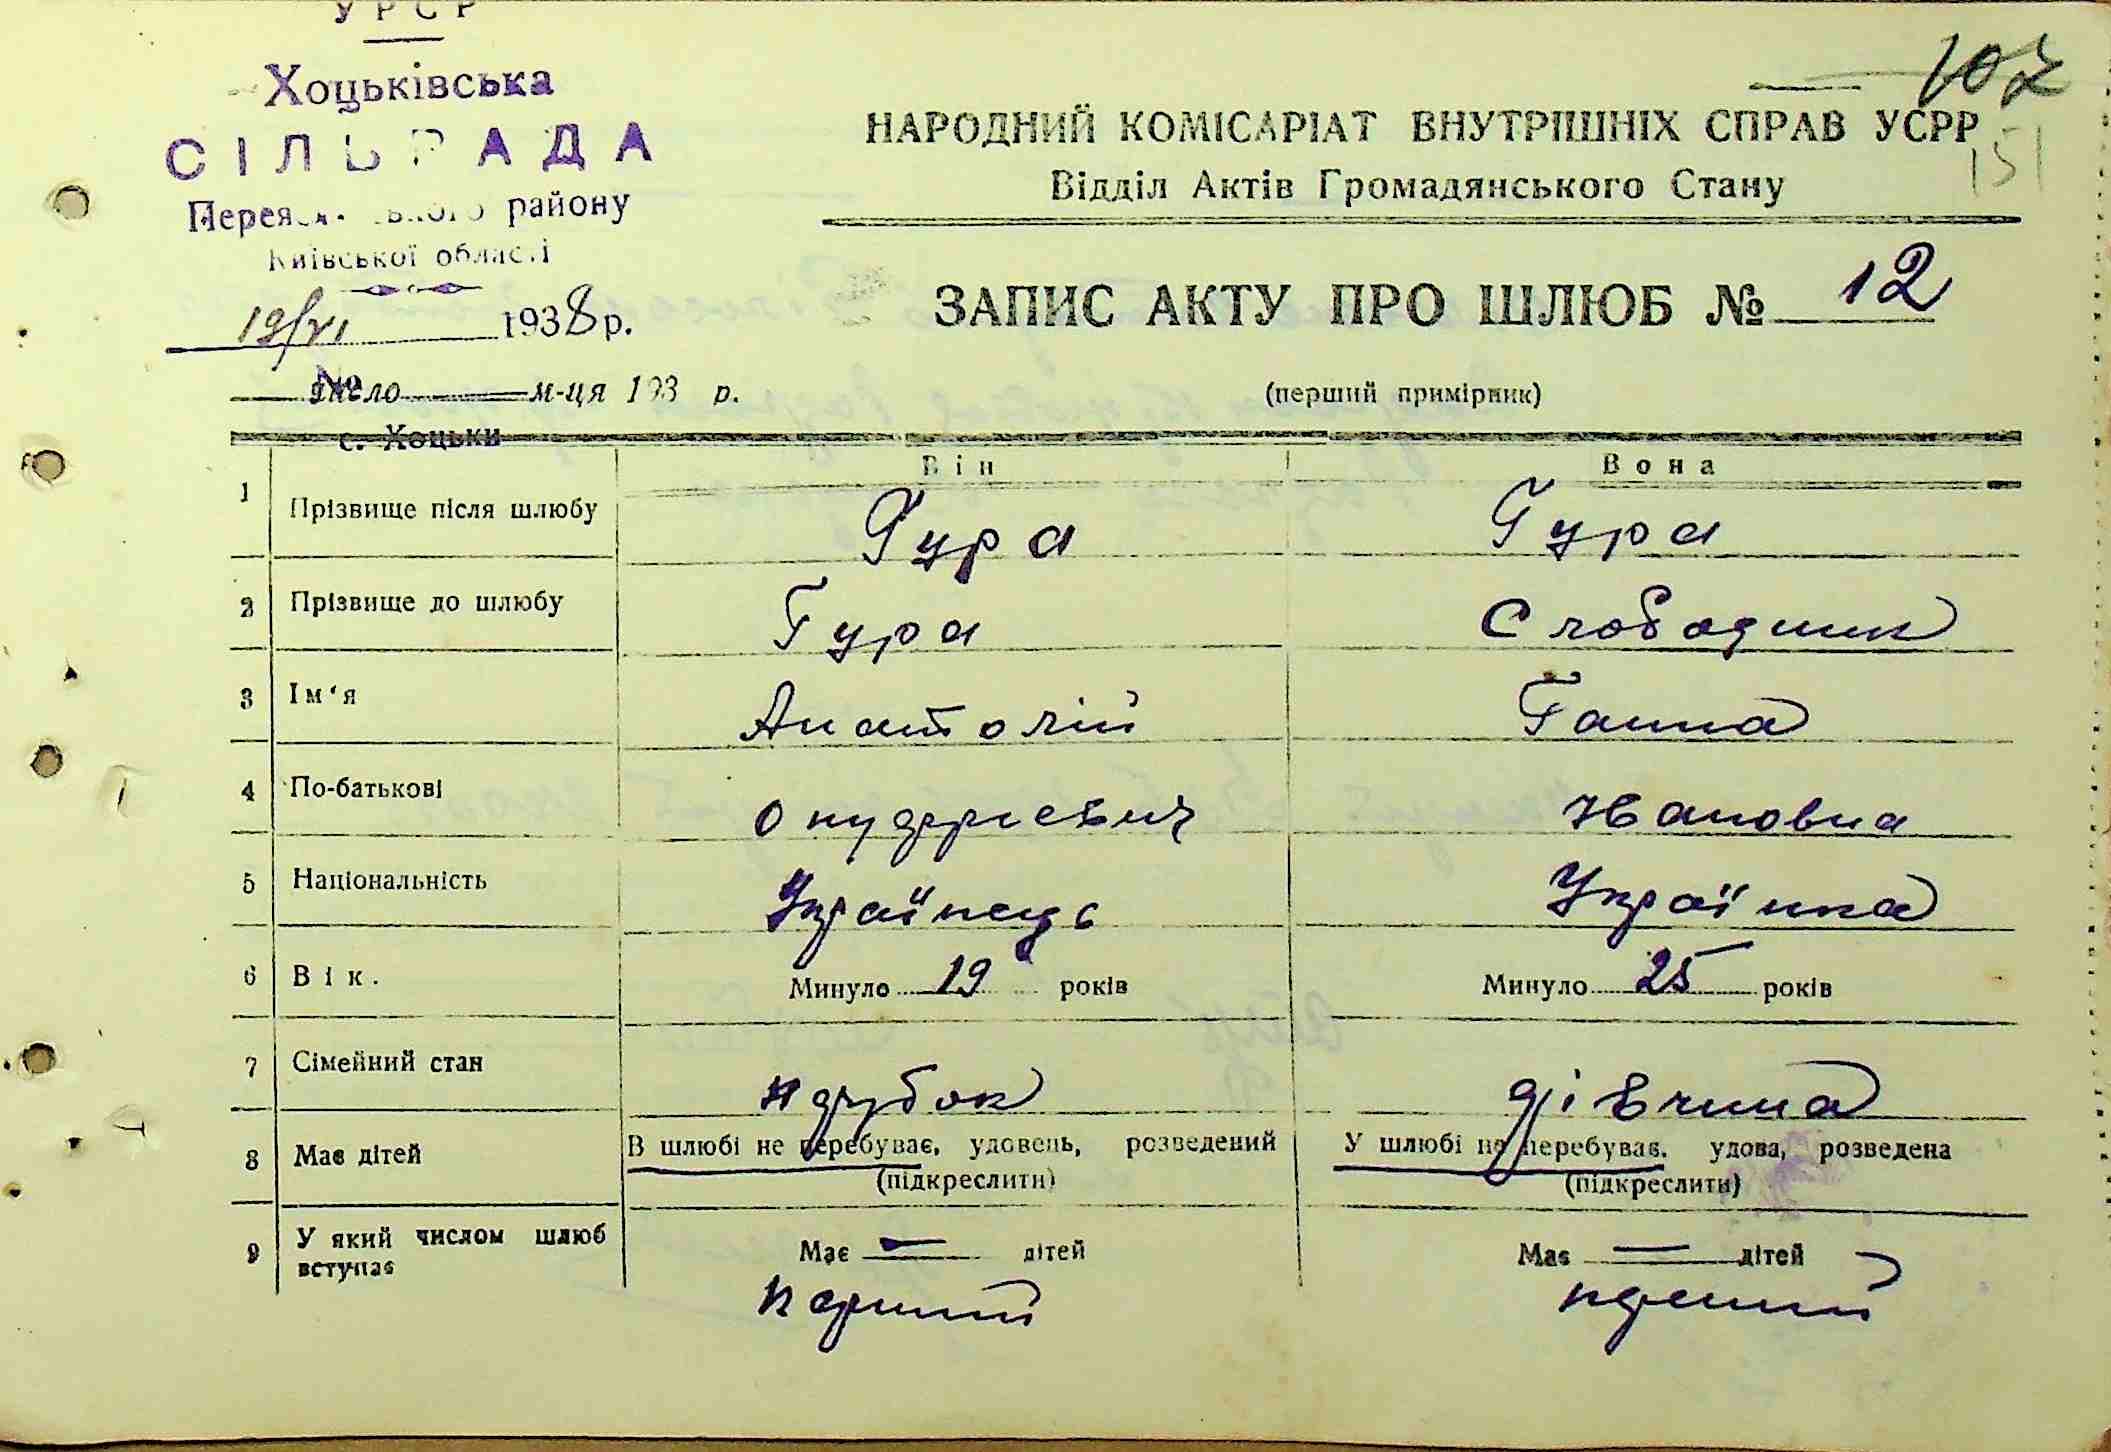 УРСР
Хоцьківська
СІЛЬРАДА
району
Київської області
19/VI 1938 р.
№
число м-ця 193 р.
с. Хоцьки
107
151
НАРОДНИЙ КОМІСАРІАТ ВНУТРІШНІХ СПРАВ УСРР
Відділ Актів Громадянського Стану
ЗАПИС АКТУ ПРО ШЛЮБ № 12
(перший примірник)
Він Вона
1 Прізвище після шлюбу Гура Гура
2 Прізвище до шлюбу Гура Слободяник
3 Ім'я Анатолій Ганна
4 По-батькові Онуфрієвич Івановна
5 Національність Українець Українка
6 Вік. Минуло 19 років Минуло 25 років
7 Сімейний стан парубок дівчина
В шлюбі не перебуває, удовець, розведений У шлюбі не перебуває, удова, розведена
(підкреслити) (підкреслити)
8 Має дітей Має — дітей Має — дітей
9 У який числом шлюб вступає перший перший